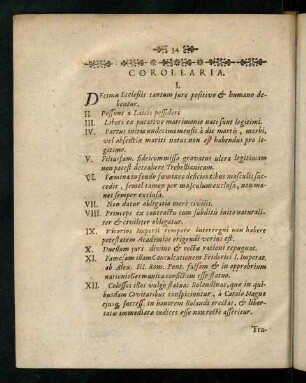 34
COROLLARIA.
I.
DEcimæ Ecclesiis tantum jure positivo & humano de-
bentur.
II. Possunt à Laicis possideri
III. Liberi ex putativo matrimonio nati sunt legitimi.
IV. Partus initio undecimi mensis à die mortis, morbi,
vel absentiæ mariti natus non est habendus pro le-
gitimo.
V. Filiusfam. fideicommisso gravatus ultra legitimam
non potest detrahere Trebellianicam.
VI. Fæmina in feudo fœmineo deficientibus masculis suc-
cedit, semel tamen per masculum exclusa, non ma-
net semper exclusa.
VII. Non datur obligatio merè civilis.
VIII. Princeps ex contractu cum subdito inito naturali-
ter & civiliter obligatur.
IX. Vicarios Imperii tempore interregni non habere
potestatem Academias erigendi verius est.
X. Duellum juri divino & rectæ rationi repugnat.
XI. Famosam illam Conculcationem Friderici I. Imperat.
ab Alex. III. Rom. Pont. falsam & in opprobrium
nationis Germanicæ confictam esse statuo.
XII. Colossos istos vulgo statuas Rolandinas, quæ in qui-
busdam Civitatibus conspiciuntur, à Carolo Magno
ejusq; success. in honorem Rolandi erectas, & liber-
tatis immediatæ indices esse non rectè asseritur.
Tra-